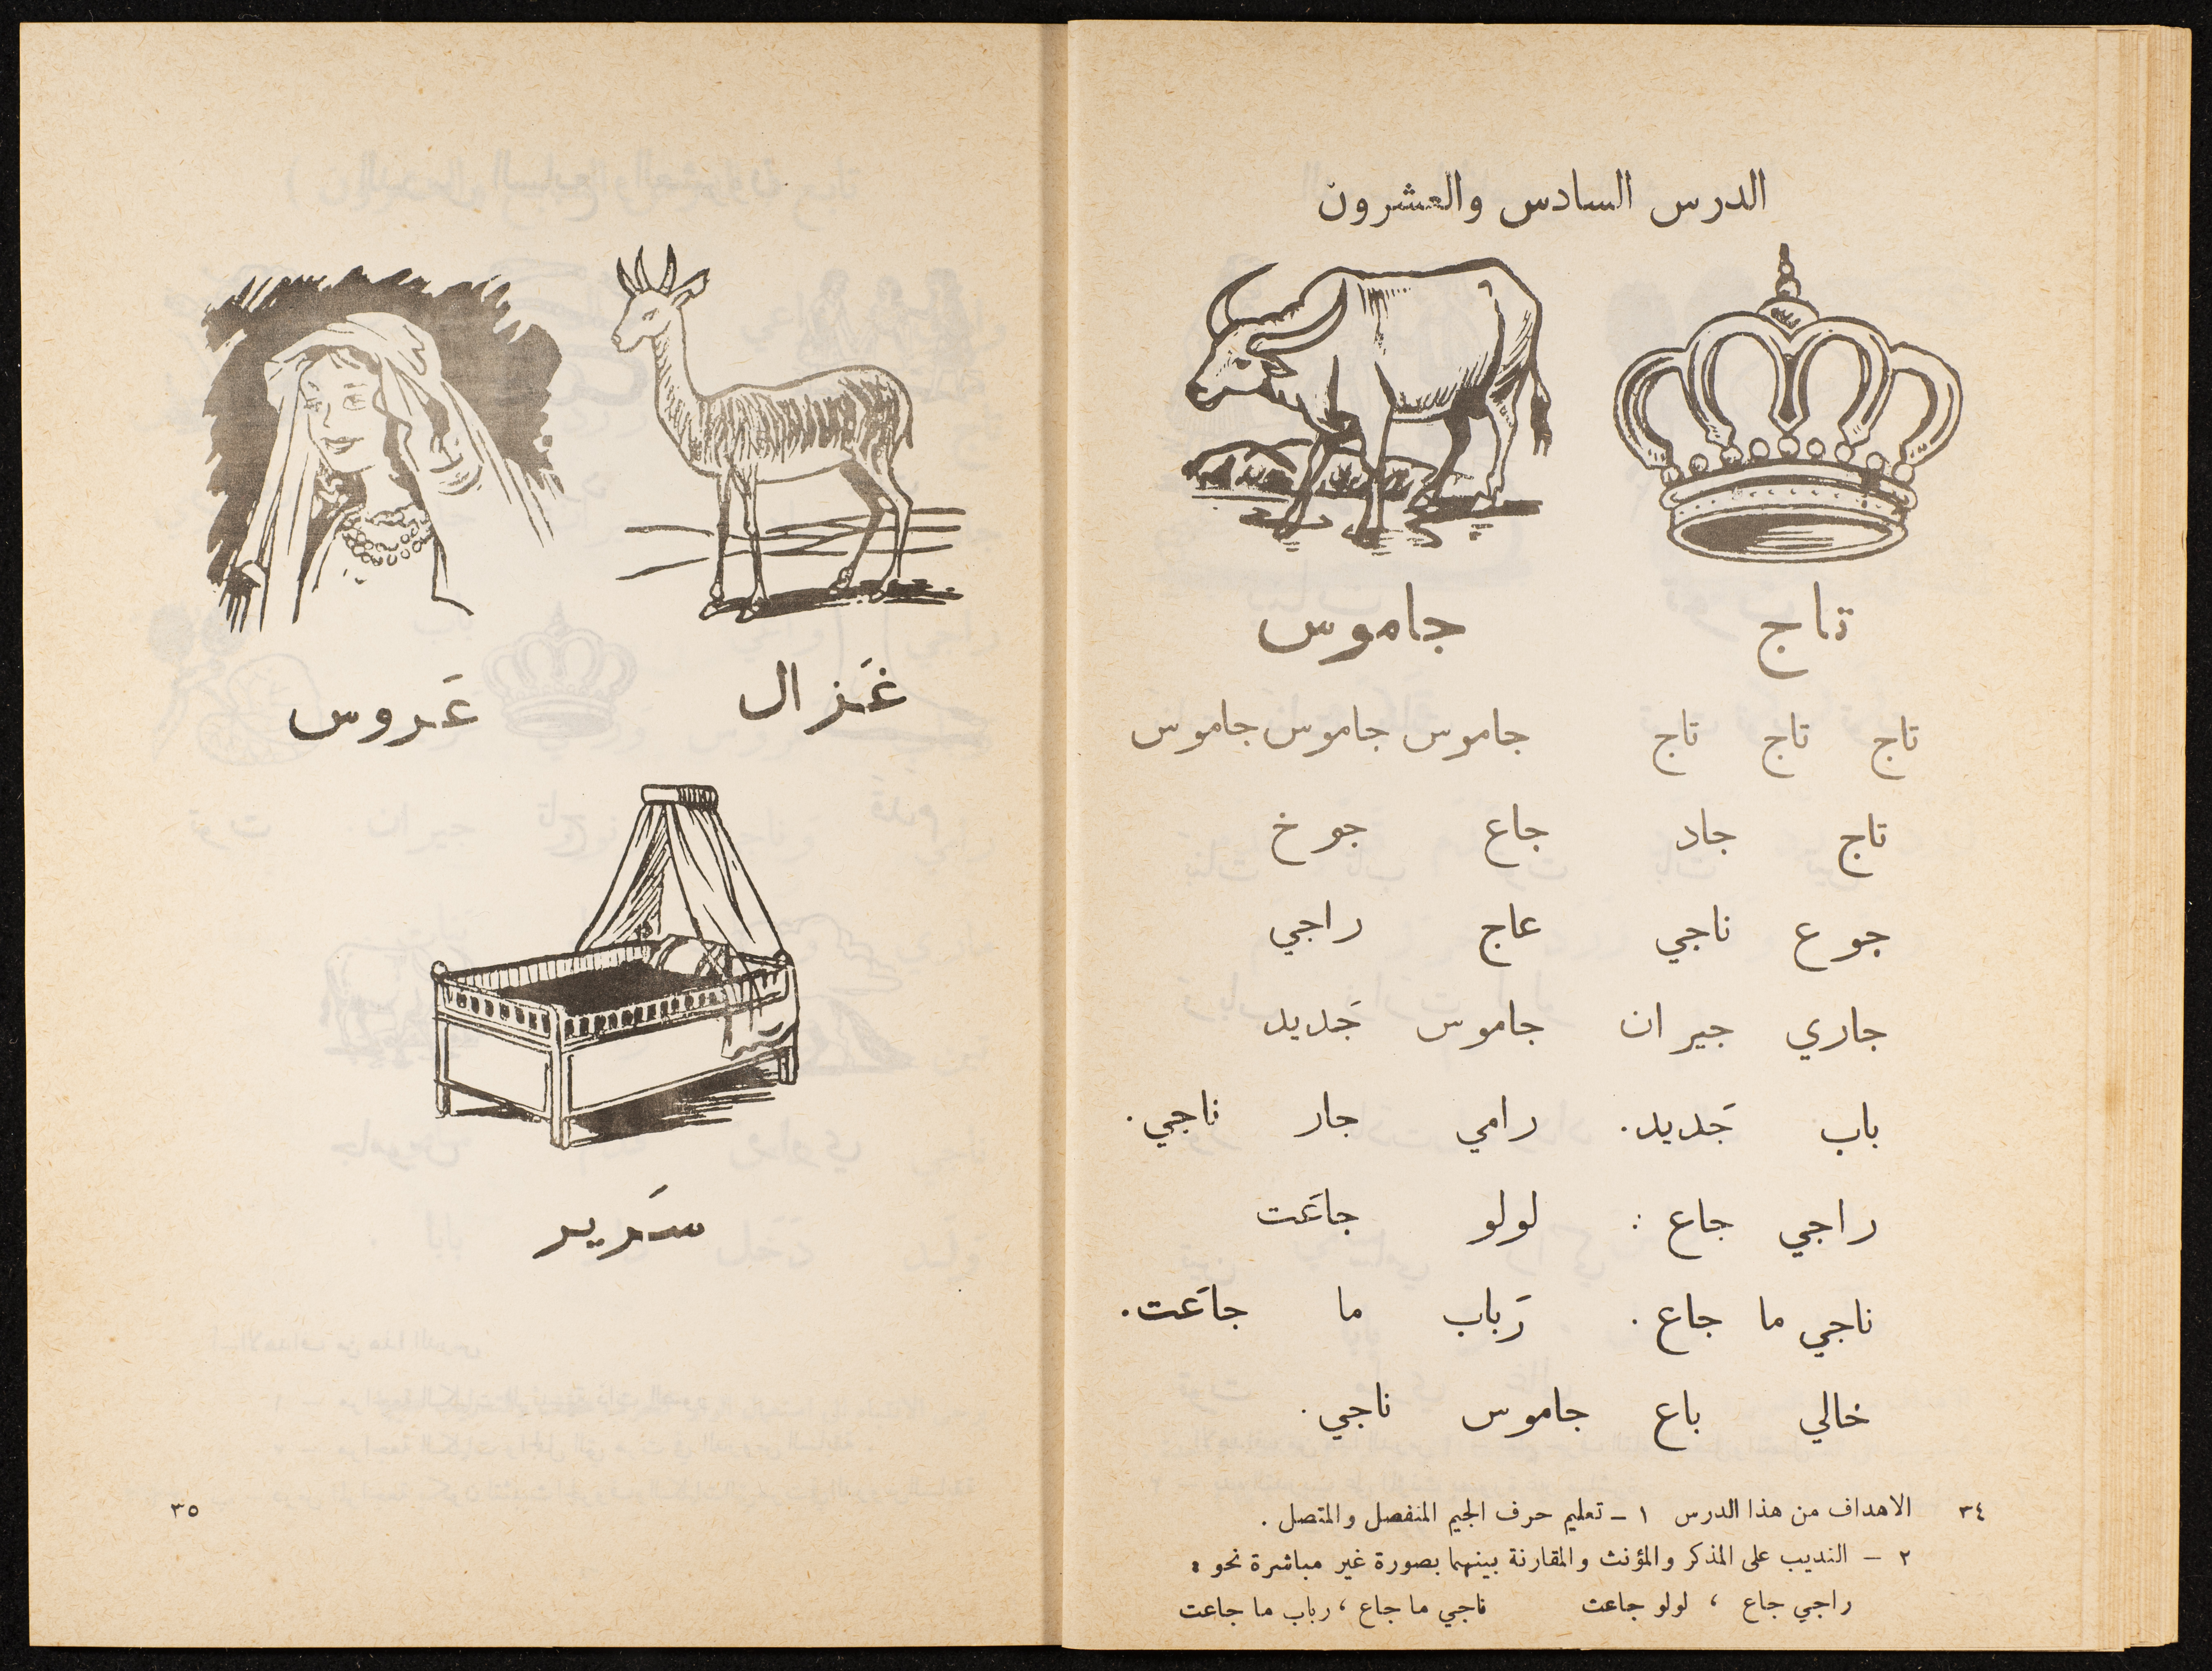 الدرس السادس والعشرون
تاج جاموس
تاج تاج تاج جاموس جاموس جاموس
تاج جاد جاع جوخ
جوع ناجي عاج راجي
جاري جيران جاموس جَديد
باب جَديد. رامي جار ناجي.
راجي جاع : لولو جاعَت
ناجي ما جاع . رَباب ما جاعَت.
خالي باع جاموس ناجي.
٣٤ الاهداف من هذا الدرس ١ – تعليم حرف الجيم المنفصل والمتصل .
٢ – التدريب على المذكر والمؤنث والمقارنة بينهما بصورة غير مباشرة نحو :
راجي جاع ، لولو جاعت ناجي ما جاع ، رباب ما جاعت
غَزال عَروس
سَرير
٣٥